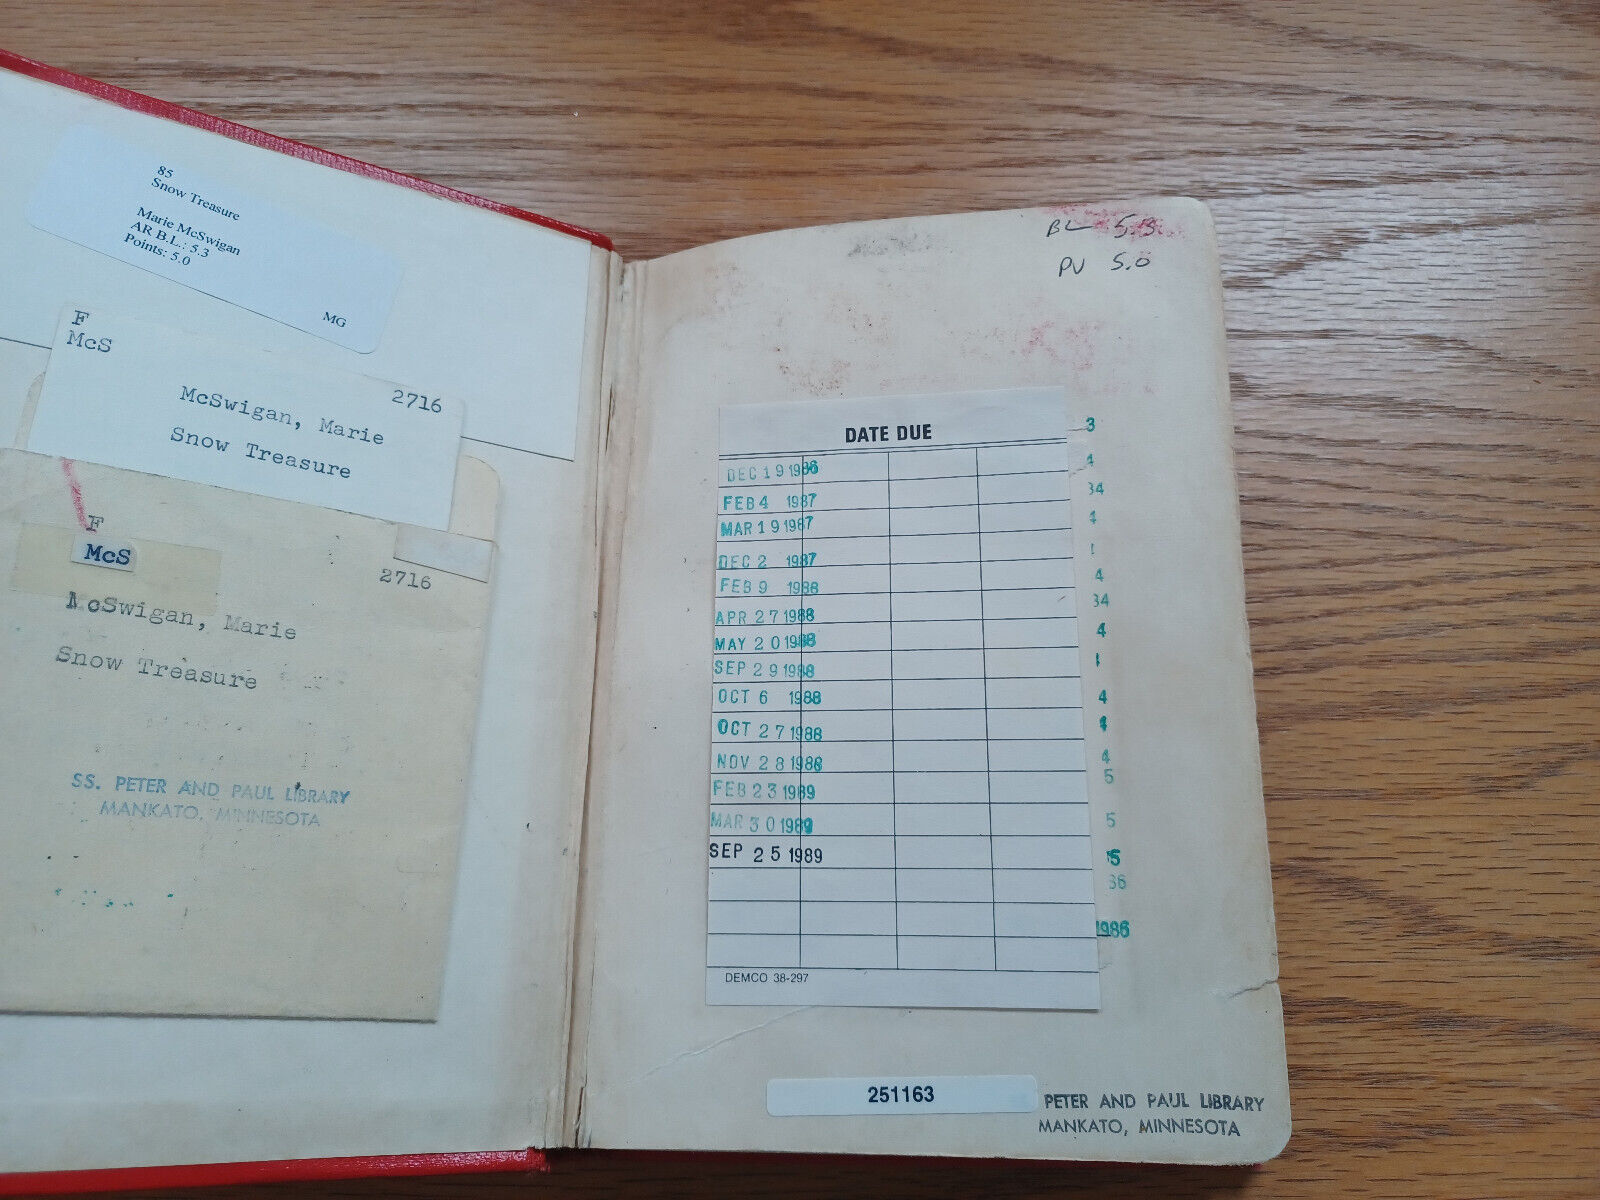 85
Snow Treasure
Marie McSwigan
AR B.L.: 5.3
Points: 5.0
MG
F
McS
2716
McSwigan, Marie
Snow Treasure
F
McS
2716
McSwigan, Marie
Snow Treasure
SS. PETER AND PAUL LIBRARY
MANKATO, MINNESOTA
BL 5.3
PV 5.0
DATE DUE
DEC 19 1986
FEB 4 1987
MAR 19 1987
DEC 2 1987
FEB 9 1988
APR 27 1988
MAY 20 1988
SEP 29 1988
OCT 6 1988
OCT 27 1988
NOV 28 1988
FEB 23 1989
MAR 30 1989
SEP 25 1989
DEMCO 38-297
3
4
84
4
4
84
4
4
4
4
5
5
5
86
1986
251163
PETER AND PAUL LIBRARY
MANKATO, MINNESOTA